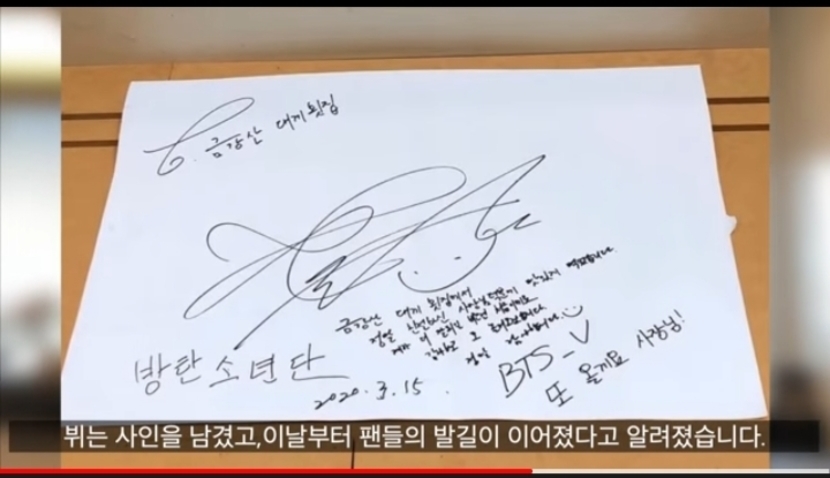 금강산 대게 횟집
금강산 대게 횟집에서
정말 사장님 덕분에 맛있게 먹었습니다
정말 감사합니다
BTS_V
또 올게요 사장님!
방탄소년단
2020.3.15.
뷔는 사인을 남겼고,이날부터 팬들의 발길이 이어졌다고 알려졌습니다.